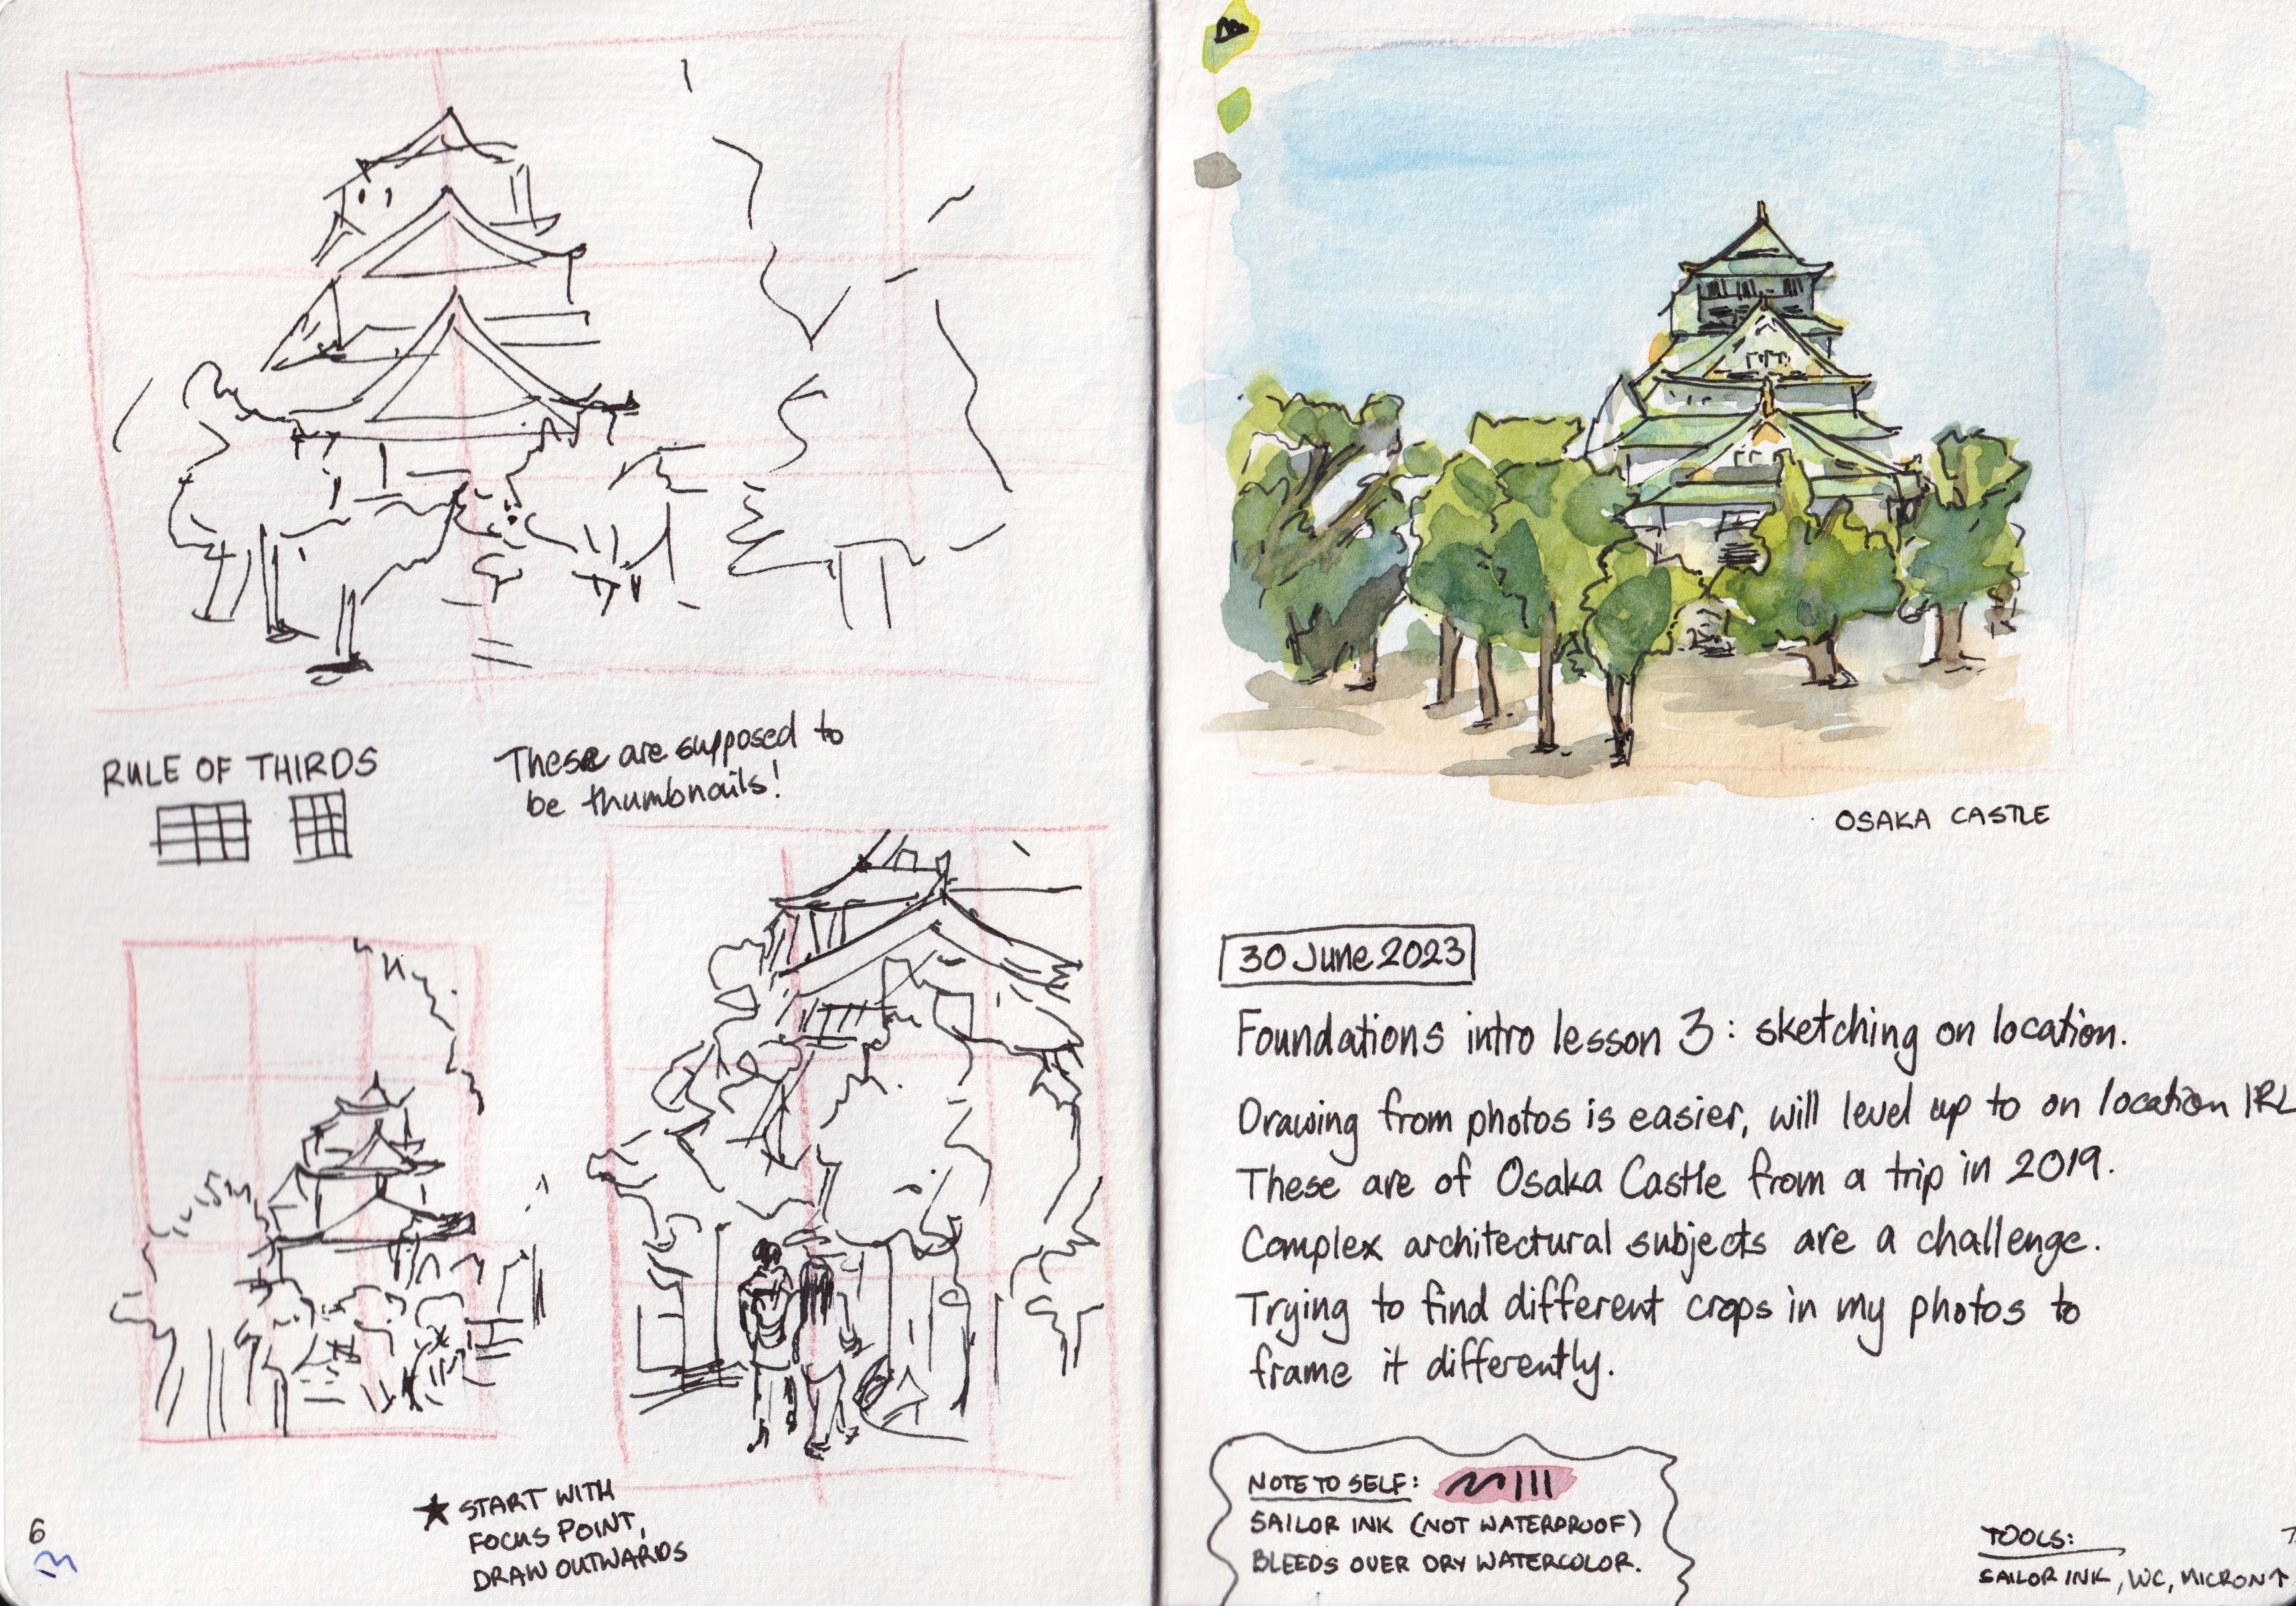 RULE OF THIRDS
These are supposed to
be thumbnails!
★ START WITH
FOCUS POINT,
DRAW OUTWARDS
6
OSAKA CASTLE
30 June 2023
Foundations intro lesson 3: sketching on location.
Drawing from photos is easier, will level up to on location IRL
These are of Osaka Castle from a trip in 2019.
Complex architectural subjects are a challenge.
Trying to find different crops in my photos to
frame it differently.
NOTE TO SELF:
SAILOR INK (NOT WATERPROOF)
BLEEDS OVER DRY WATERCOLOR.
TOOLS:
SAILOR INK, WC, MICRON↑
7